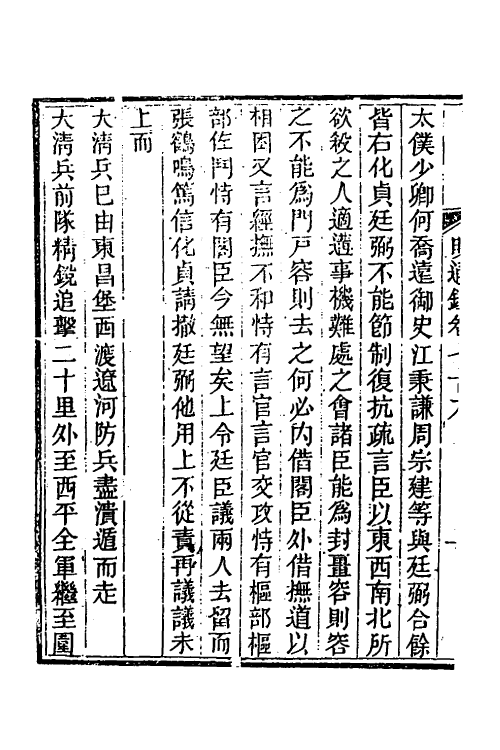 明通鑑卷七十八
太僕少卿何喬遠御史江秉謙周宗建等與廷弼合餘
皆右化貞廷弼不能節制復抗疏言臣以東西南北所
欲殺之人適遘事機難處之會諸臣能爲封疆容則容
之不能爲門戶容則去之何必內借閣臣外借撫道以
相困又言經撫不和恃有言官言官交攻恃有樞部樞
部佐鬥恃有閣臣今無望矣上令廷臣議兩人去留而
張鶴鳴篤信化貞請撤廷弼他用上不從責再議議未
上而
大清兵已由東昌堡西渡遼河防兵盡潰遁而走
大清兵前隊精銳追擊二十里外至西平全軍繼至圍